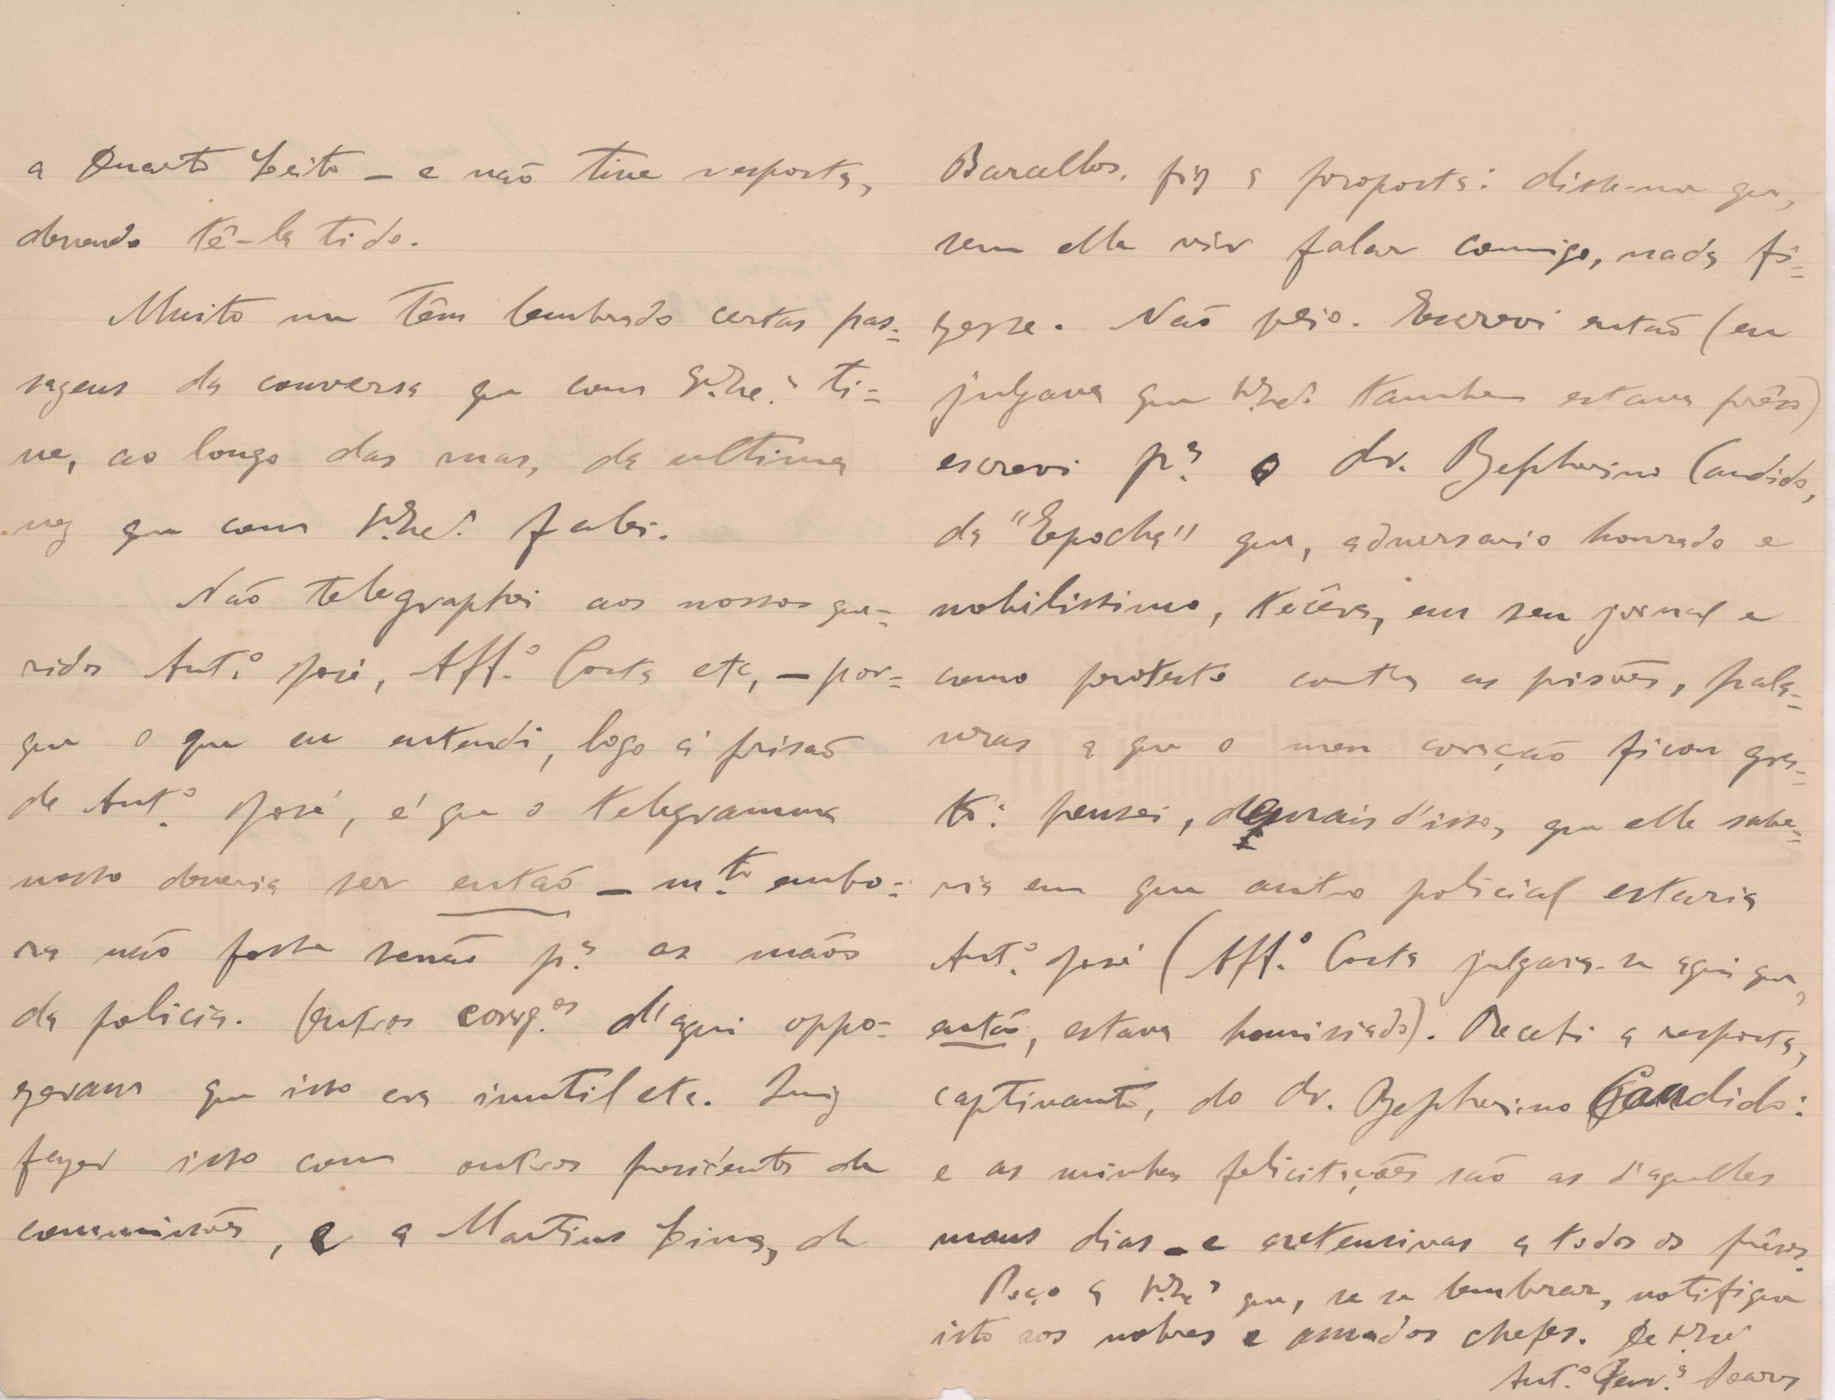 a Duarte Leite – e não tive resposta,
devendo tê-la tido.
Muito me têm lembrado certas pas=
sagens da conversa que com V. Ex.ª ti=
ve, ao longo das ruas, da ultima
vez que com V. Ex.ª falei.
Não telegraphei aos nossos que=
ridos Ant.º José, Aff.º Costa etc, – por=
que o que eu entendi, logo á prisão
de Ant.º José, é que o telegramma
nosso deveria ser então – m.to embo=
ra não fosse senão p.ª as mãos
da policia. Outros corrg.os d'aqui oppo=
zeram que isto era inutil etc. Quiz
fazer isso com outros presidentes de
commissões, e a Martins Lima, de
Barcellos, fiz a proposta: disse-me que,
sem elle vir falar comigo, nada fi=
zesse. Não veio. Escrevi então (eu
julgava que V. Ex.ª tambem estava prêso)
escrevi p.ª o dr. Zephirino Candido,
da "Epocha" que, adversario honrado e
nobilissimo, tecêra, em seu jornal e
como protesto contra as prisões, pala=
vras a que o meu coração ficou gra=
to: pensei, demais d'isso, que elle sabe=
ria em que antro policial estaria
Ant.º José (Aff.º Costa julgava-se aqui que,
então, estava homisiado). Recebi a resposta,
captivante, do dr. Zephirino Candido:
e as minhas felicitações são as d'aquelles
maus dias – e extensivas a todos os prêsos.
Peço a V. Ex.ª que, se se lembrar, notifique
isto aos nobres e amados chefes. De V. Ex.ª
Ant.º